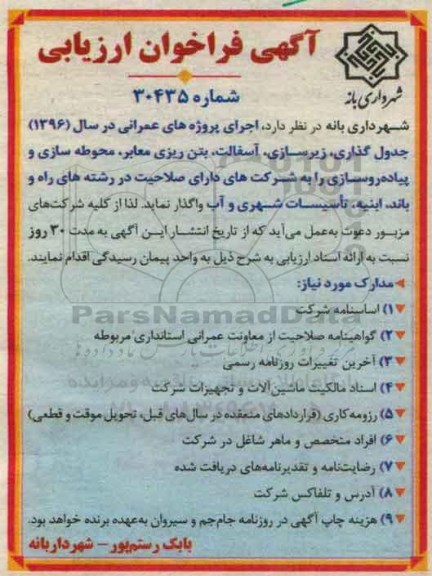 آگهی فراخوان ارزیابی
شماره ۳۰۴۳۵
شهرداری بانه
شهرداری بانه در نظر دارد، اجرای پروژه های عمرانی در سال (۱۳۹۶)
جدول گذاری، زیرسازی، آسفالت، بتن ریزی معابر، محوطه سازی و
پیاده‌روسازی را به شرکت های دارای صلاحیت در رشته های راه و
باند، ابنیه، تأسیسات شهری و آب واگذار نماید. لذا از کلیه شرکت‌های
مزبور دعوت به‌عمل می‌آید که از تاریخ انتشار این آگهی به مدت ۳۰ روز
نسبت به ارائه اسناد ارزیابی به شرح ذیل به واحد پیمان رسیدگی اقدام نمایند.
مدارک مورد نیاز:
۱) اساسنامه شرکت
ParsNamadData
۲) گواهینامه صلاحیت از معاونت عمرانی استانداری مربوطه
۳) آخرین تغییرات روزنامه رسمی
۴) اسناد مالکیت ماشین‌آلات و تجهیزات شرکت
۵) رزومه کاری (قراردادهای منعقده در سال‌های قبل، تحویل موقت و قطعی)
۶) افراد متخصص و ماهر شاغل در شرکت
۷) رضایتنامه و تقدیرنامه‌های دریافت شده
۸) آدرس و تلفاکس شرکت
۹) هزینه چاپ آگهی در روزنامه جام‌جم و سیروان به‌عهده برنده خواهد بود.
بابک رستم‌پور – شهردار بانه